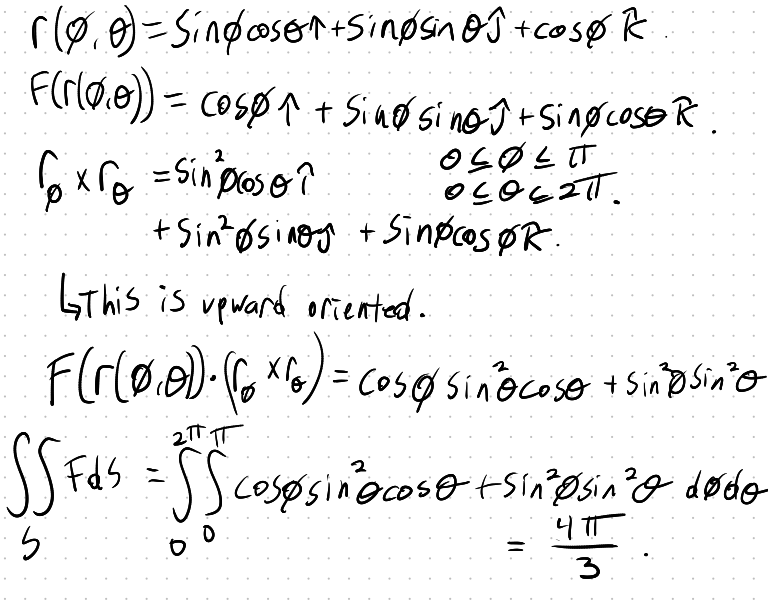 r(φ,θ) = Sinφcosθ î + Sinφsinθ ĵ + cosφ k̂.
F(r(φ,θ)) = cosφ î + Sinφ sinθ ĵ + Sinφcosθ k̂.
r_φ × r_θ = Sin²φcosθ î    0 ≤ φ ≤ π
+ Sin²φsinθ ĵ + Sinφcosφ k̂.    0 ≤ θ ≤ 2π.
↳This is upward oriented.
F(r(φ,θ))·(r_φ × r_θ) = cosφ sin²θcosθ + sin²φsin²θ
∬_S F dS = ∫_0^{2π} ∫_0^π cosφsin²θcosθ + sin²φsin²θ dφdθ
= 4π/3.